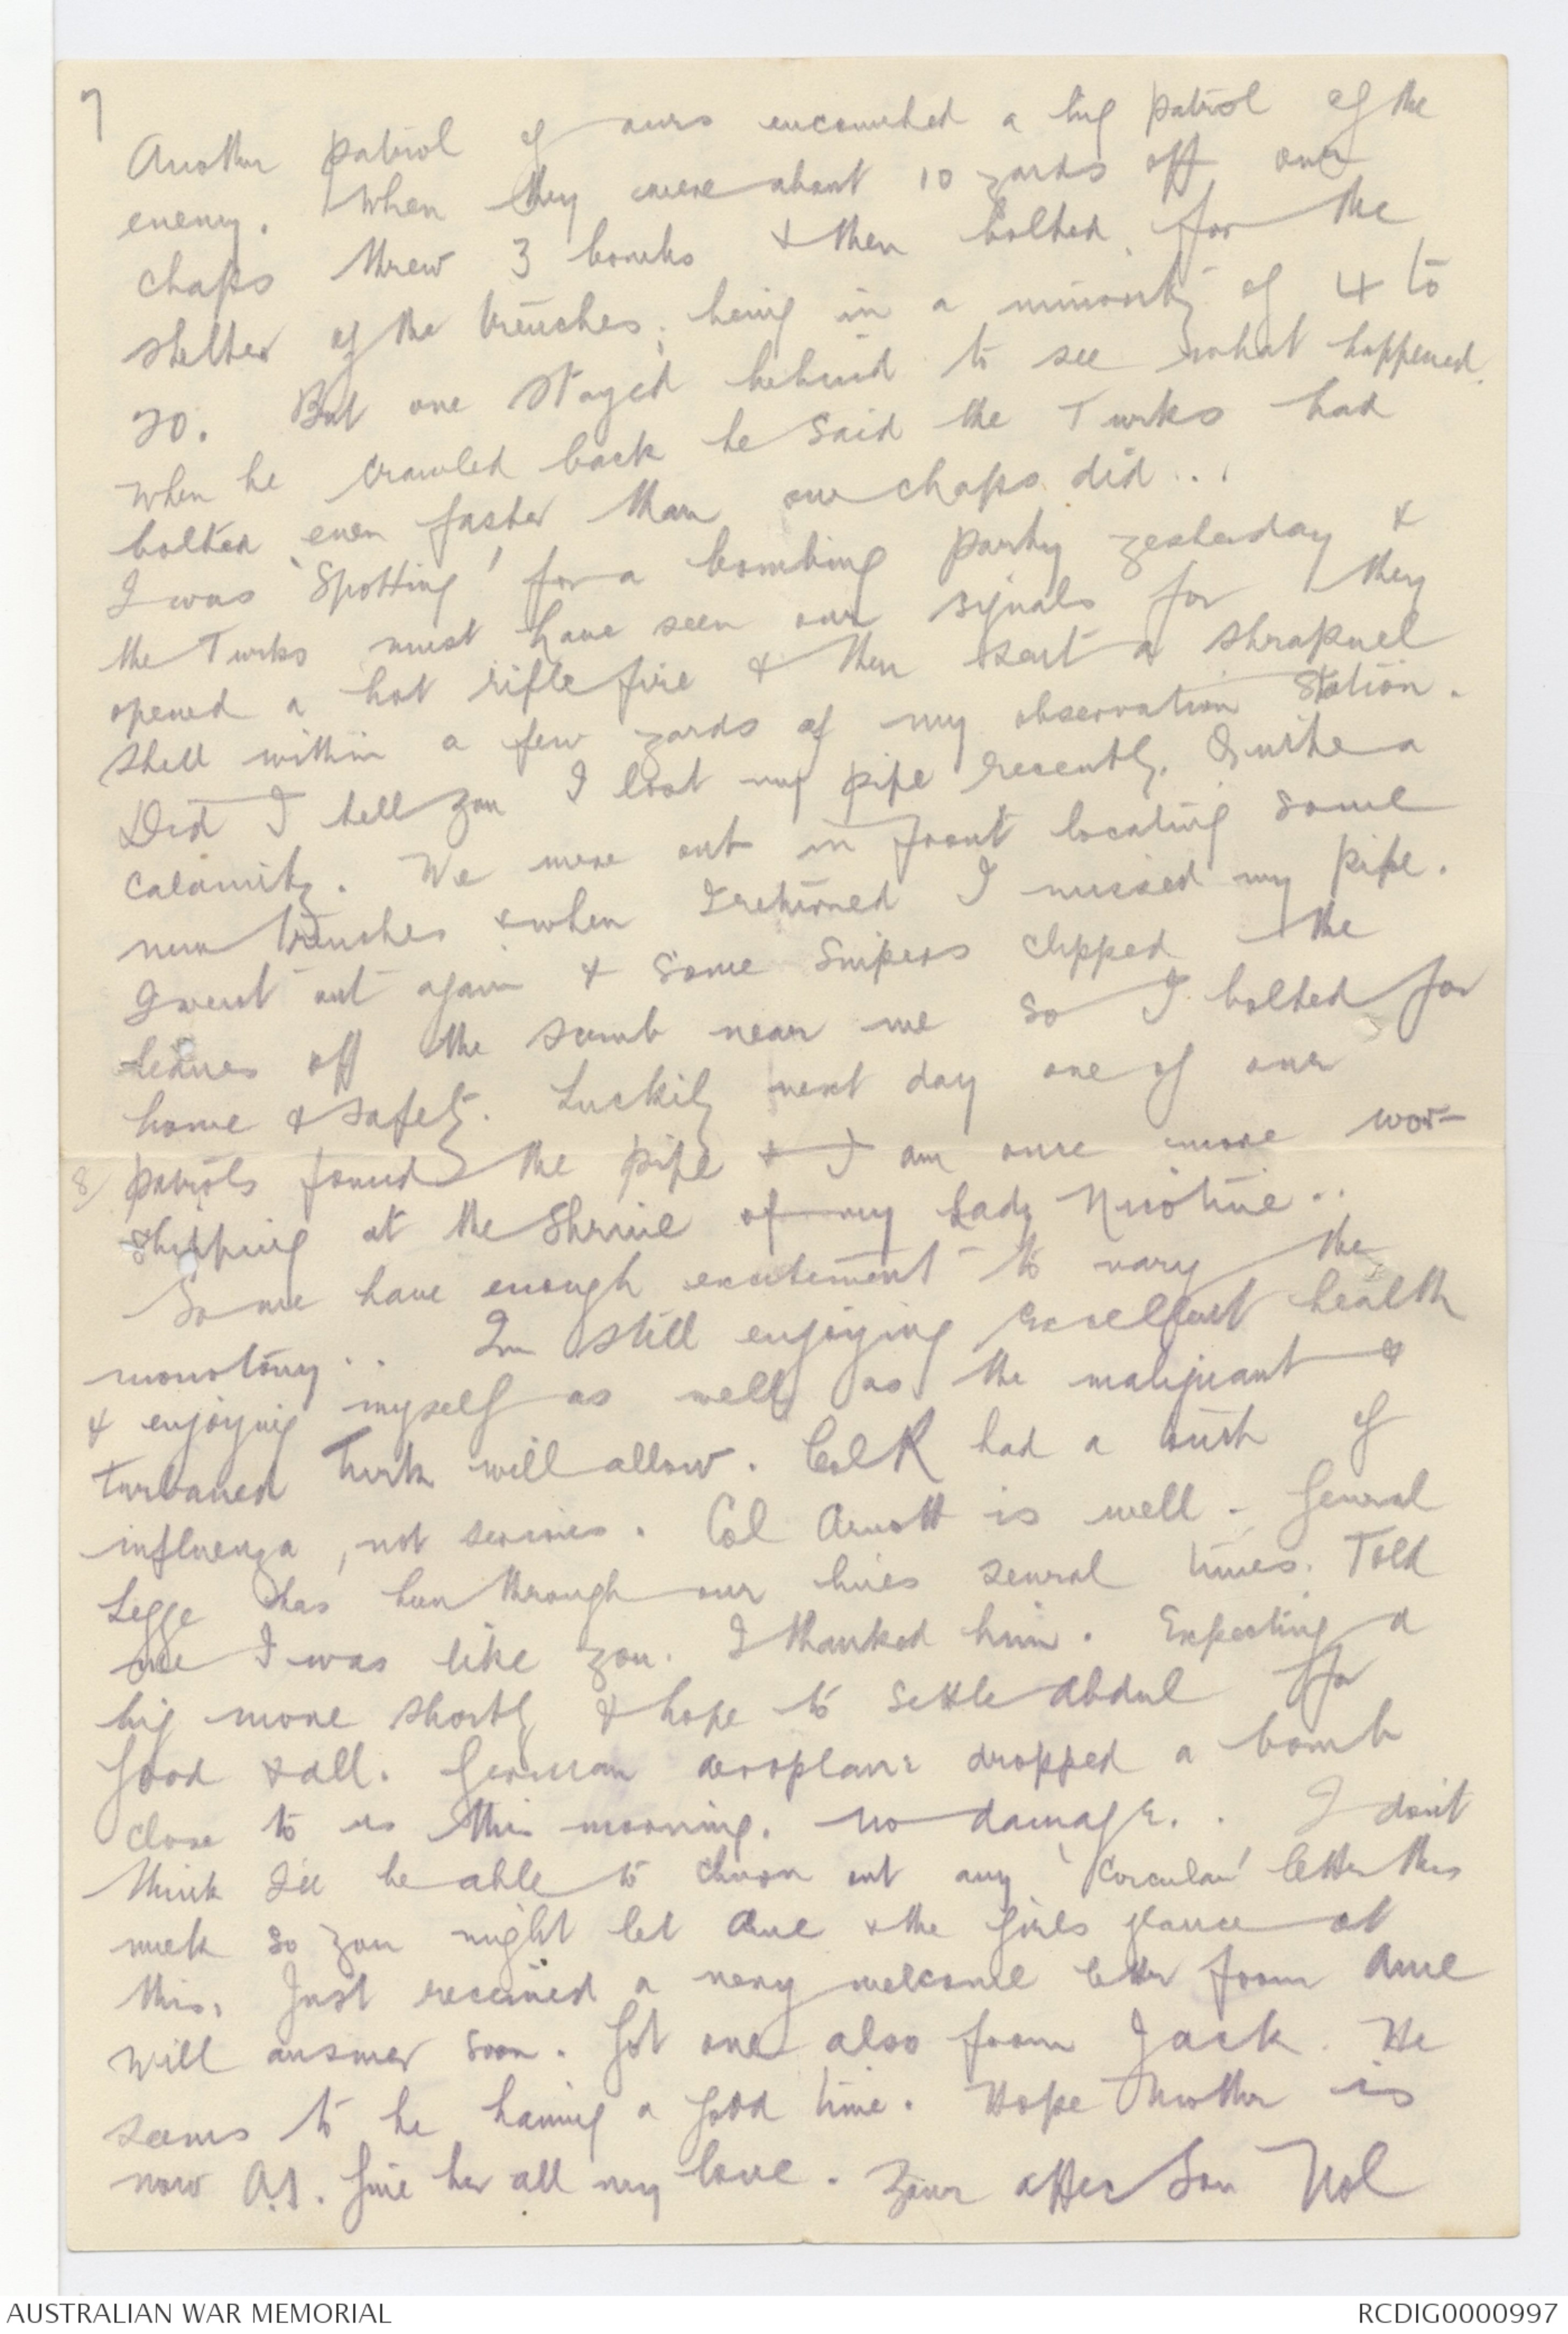 7
Another patrol of ours encounted a big patrol of the
enemy. When they were about 10 yards off our
chaps threw 3 bombs & then bolted for the
shelter of the trenches; being in a minority of 4 to
20. But one stayed behind to see what happened.
When he crawled back he said the Turks had
bolted even faster than our chaps did...
I was 'Spotting' for a bombing party yesterday &
the Turks must have seen our signals for they
opened a hot rifle fire & then sent a shrapnel
shell within a few yards of my observation station.
Did I tell you I lost my pipe recently. Quite a
calamity. We were out in front locating some
new trenches & when I returned I missed my pipe.
I went out again & some snipers clipped the
leaves off the scrub near me so I bolted for
home & safety. Luckily next day one of our
8/ patrols found the pipe & I am once more wor-
shipping at the Shrine of my Lady Nicotine..
So we have enough excitement to vary the
monotony.. Im still enjoying excellent health
& enjoying myself as well as the malignant &
turbaned Turk will allow. Col R had a
of
influenza, not serious. Col Arnott is well. General
Legge has been through our lines several times. Told
me I was like you. I thanked him. Expecting a
big move shortly & hope to settle Abdul for
good & all. German aeroplane dropped a bomb
close to us this morning. No damage.. I don't
think I'll be able to churn out any 'Circular' letter this
week so you might let Aue & the girls glance at
this. Just received a very welcome letter from Aue
will answer soon. Got one also from Jack. He
seems to be having a good time. Hope Mother is
now A.1. Give her all my love. Your affec Son Nol
AUSTRALIAN WAR MEMORIAL
RCDIG0000997